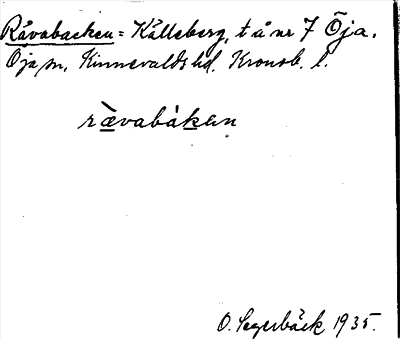 Rävabacken = Källeberg, t å nr 7 Öja.
Öja sn, Kinnevalds hd. Kronob. l.
rävabàkan
O. Segerbäck 1935.